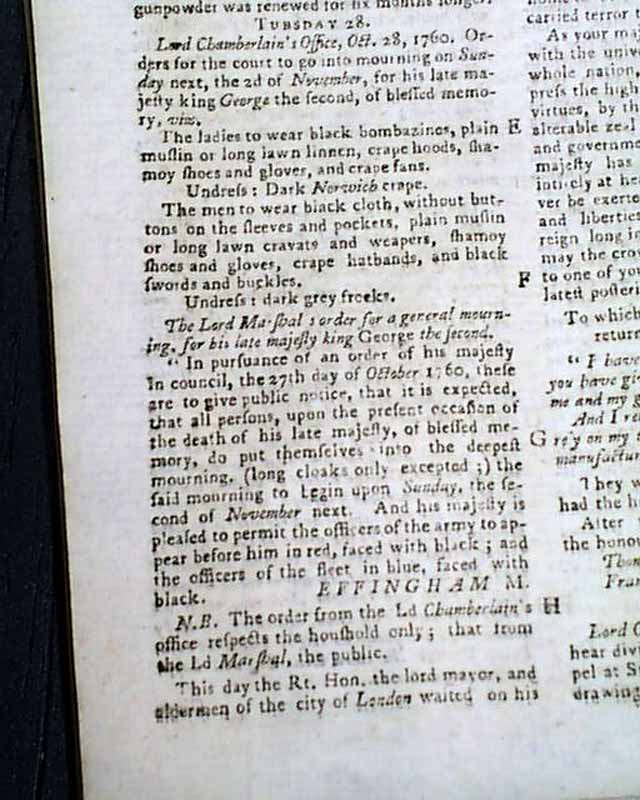 gunpowder was renewed for six months longer.
TUESDAY 28.
Lord Chamberlain's Office, Oct. 28, 1760. Or-
ders for the court to go into mourning on Sun-
day next, the 2d of November, for his late ma-
jeſty king George the ſecond, of bleſſed memo-
ry, viz.
The ladies to wear black bombazines, plain
muſlin or long lawn linnen, crape hoods, ſha-
moy ſhoes and gloves, and crape fans.
Undreſs: Dark Norwich crape.
The men to wear black cloth, without but-
tons on the ſleeves and pockets, plain muſlin
or long lawn cravats and weapers, ſhamoy
ſhoes and gloves, crape hatbands, and black
ſwords and buckles.
Undreſs: dark grey frocks.
The Lord Marſhal's order for a general mourn-
ing, for his late majeſty king George the ſecond.
"In purſuance of an order of his majeſty
in council, the 27th day of October 1760, theſe
are to give public notice, that it is expected,
that all perſons, upon the preſent occaſion of
the death of his late majeſty, of bleſſed me-
mory, do put themſelves into the deepeſt
mourning, (long cloaks only excepted;) the
ſaid mourning to begin upon Sunday, the ſe-
cond of November next. And his majeſty is
pleaſed to permit the officers of the army to ap-
pear before him in red, faced with black; and
the officers of the fleet in blue, faced with
black. EFFINGHAM M.
N.B. The order from the Ld Chamberlain's
office reſpects the houſhold only; that from
the Ld Marſhal, the public.
This day the Rt. Hon. the lord mayor, and
aldermen of the city of London waited on his
E
F
G
H
carried terror
As your maj
with the univ
whole nation
preſs the high
virtues, by th
alterable zeal
and governme
majeſty has
intirely at he
ver be exerte
and liberties
reign long in
may the crow
to one of you
lateſt poſteri
To which
return
"I have
you have giv
me and my g
And I re
rely on my
manufactur
They w
had the h
After
the honou
Thom
Fran
Lord C
hear divi
pel at S
drawing